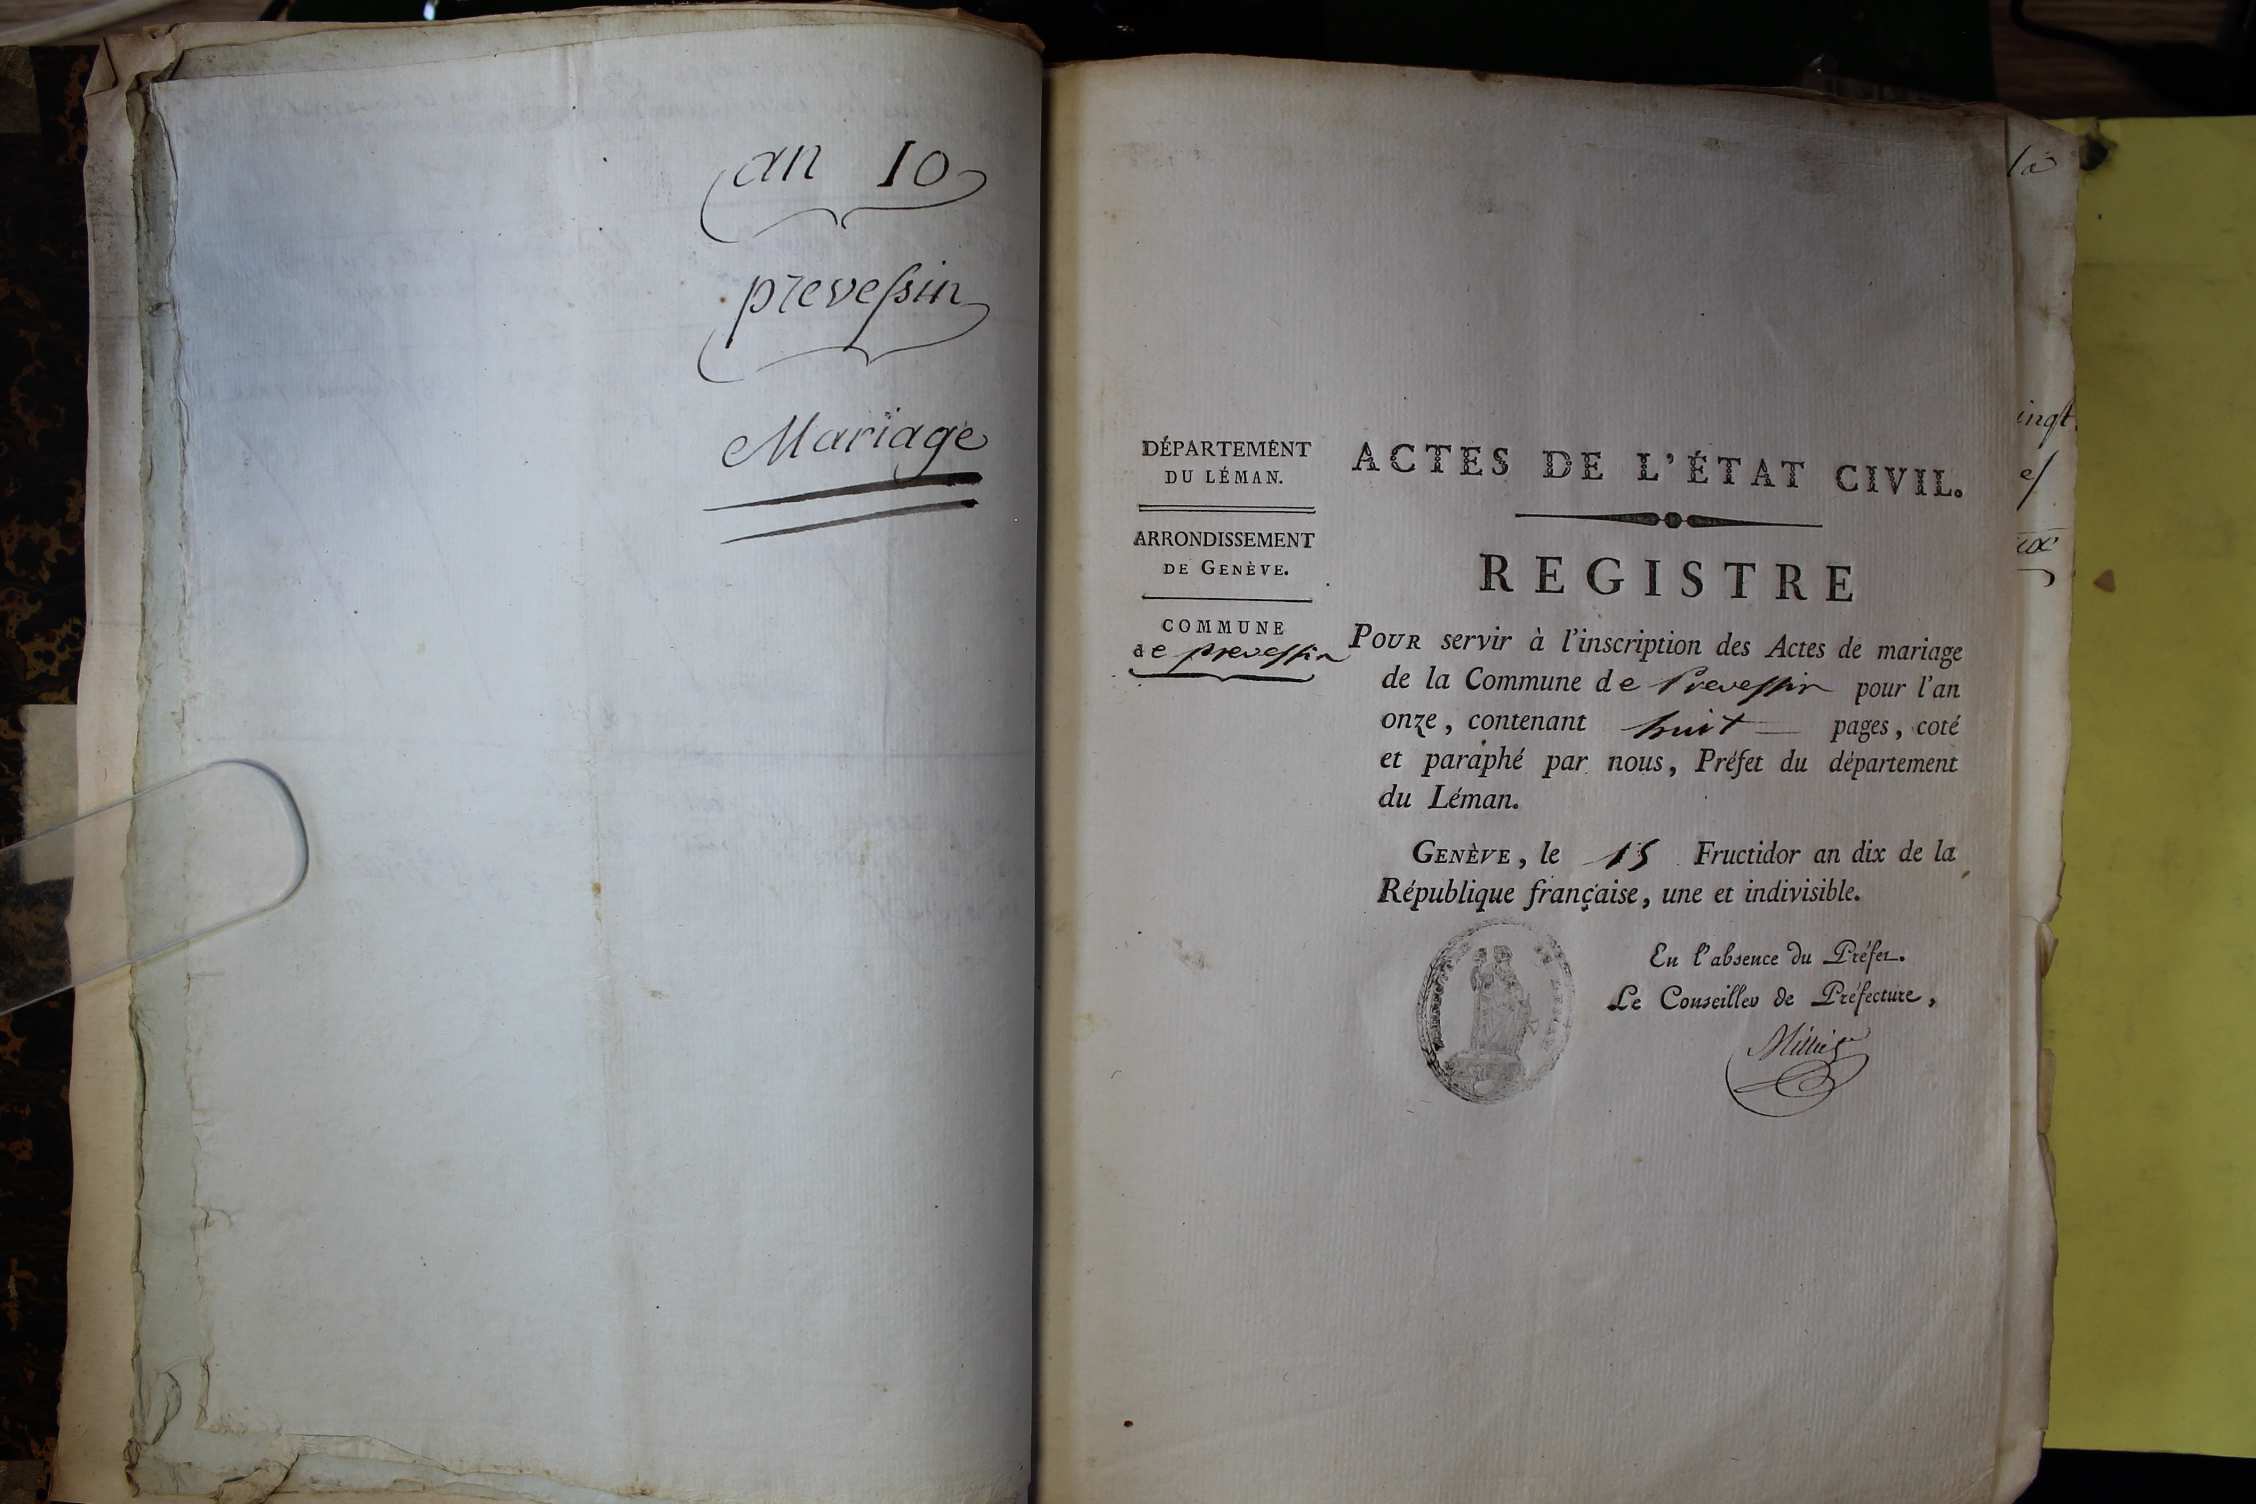 an 10
prevessin
Mariage
DÉPARTEMENT
DU LÉMAN.
ARRONDISSEMENT
DE GENÈVE.
COMMUNE
de prevessin
ACTES DE L'ÉTAT CIVIL.
REGISTRE
POUR servir à l'inscription des Actes de mariage
de la Commune de Prevessin pour l'an
onze, contenant huit pages, coté
et paraphé par nous, Préfet du département
du Léman.
GENÈVE, le 15 Fructidor an dix de la
République française, une et indivisible.
En l'absence du Préfet.
Le Conseiller de Préfecture,
la